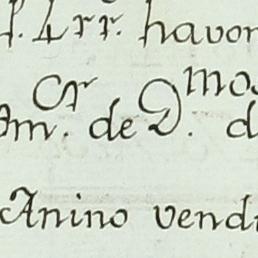 Lrr. havon
cr mos
m. de D. d
Anino vendi